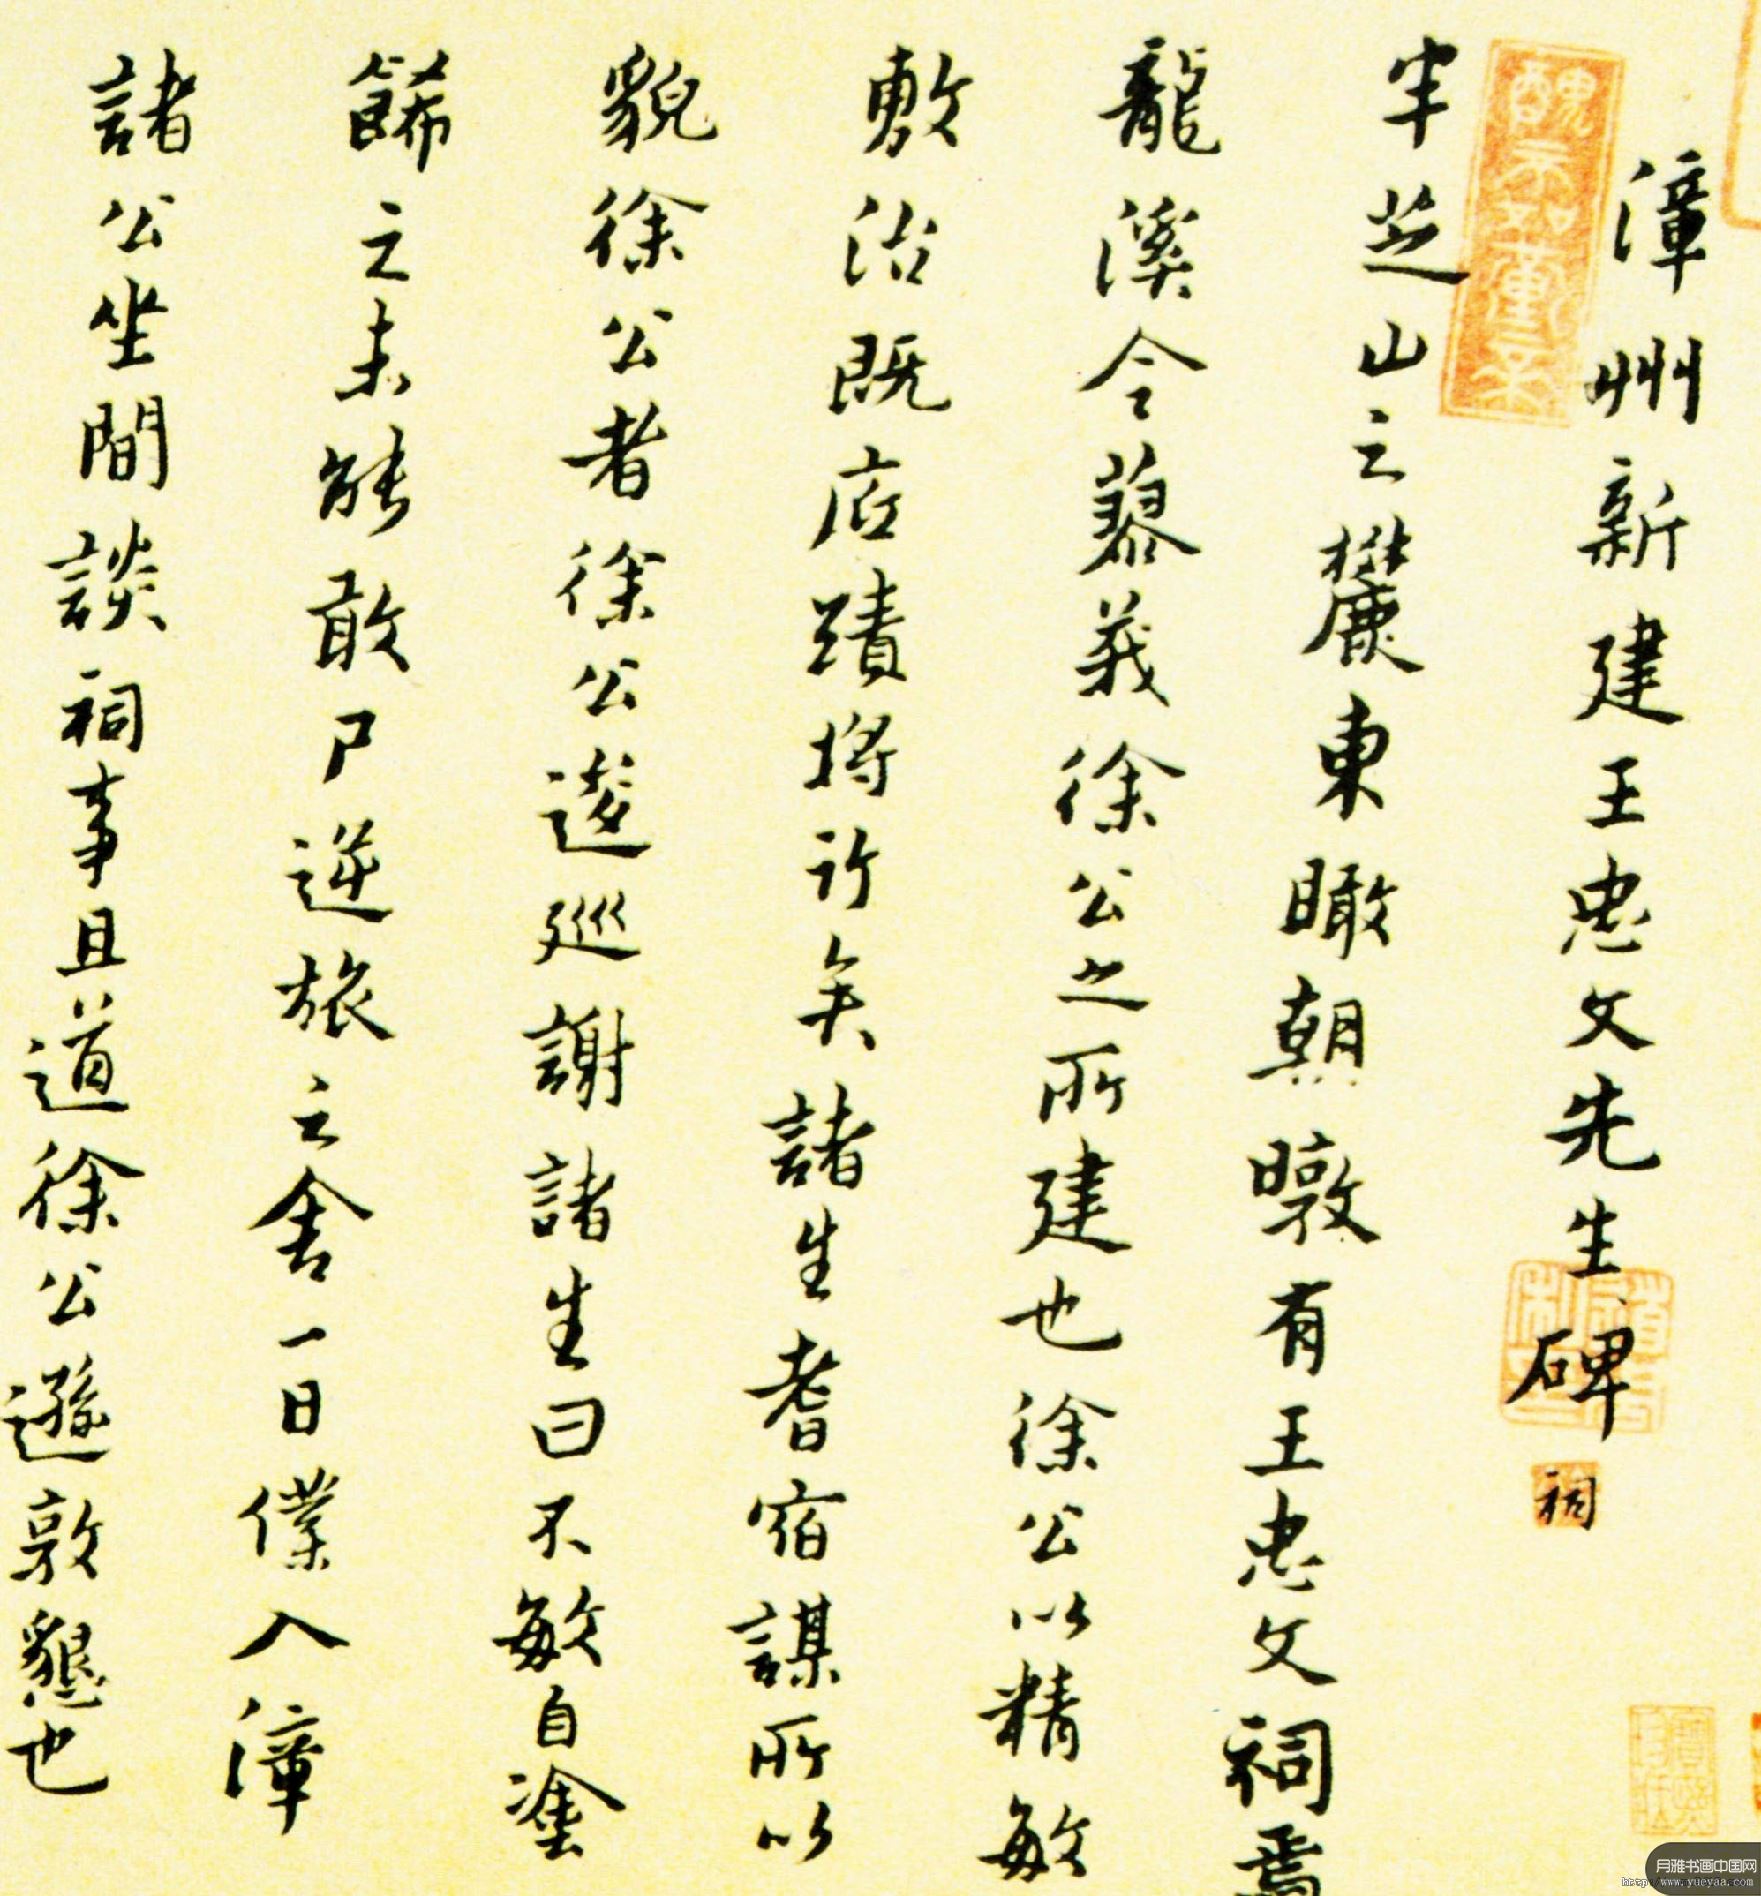 漳州新建王忠文先生碑
祠
半芝山之麓東瞰朝暾有王忠文祠焉
龍溪令蓼莪徐公之所建也徐公以精敏
敷治既底蹟將行矣諸生耆宿謀所以
貌徐公者徐公逡巡謝諸生曰不敏自塗
餙之未能敢尸逆旅之舍一日僕入漳
諸公坐間談祠事且道徐公遜敦懇也
月雅书画中国网
http://www.yueyaa.com